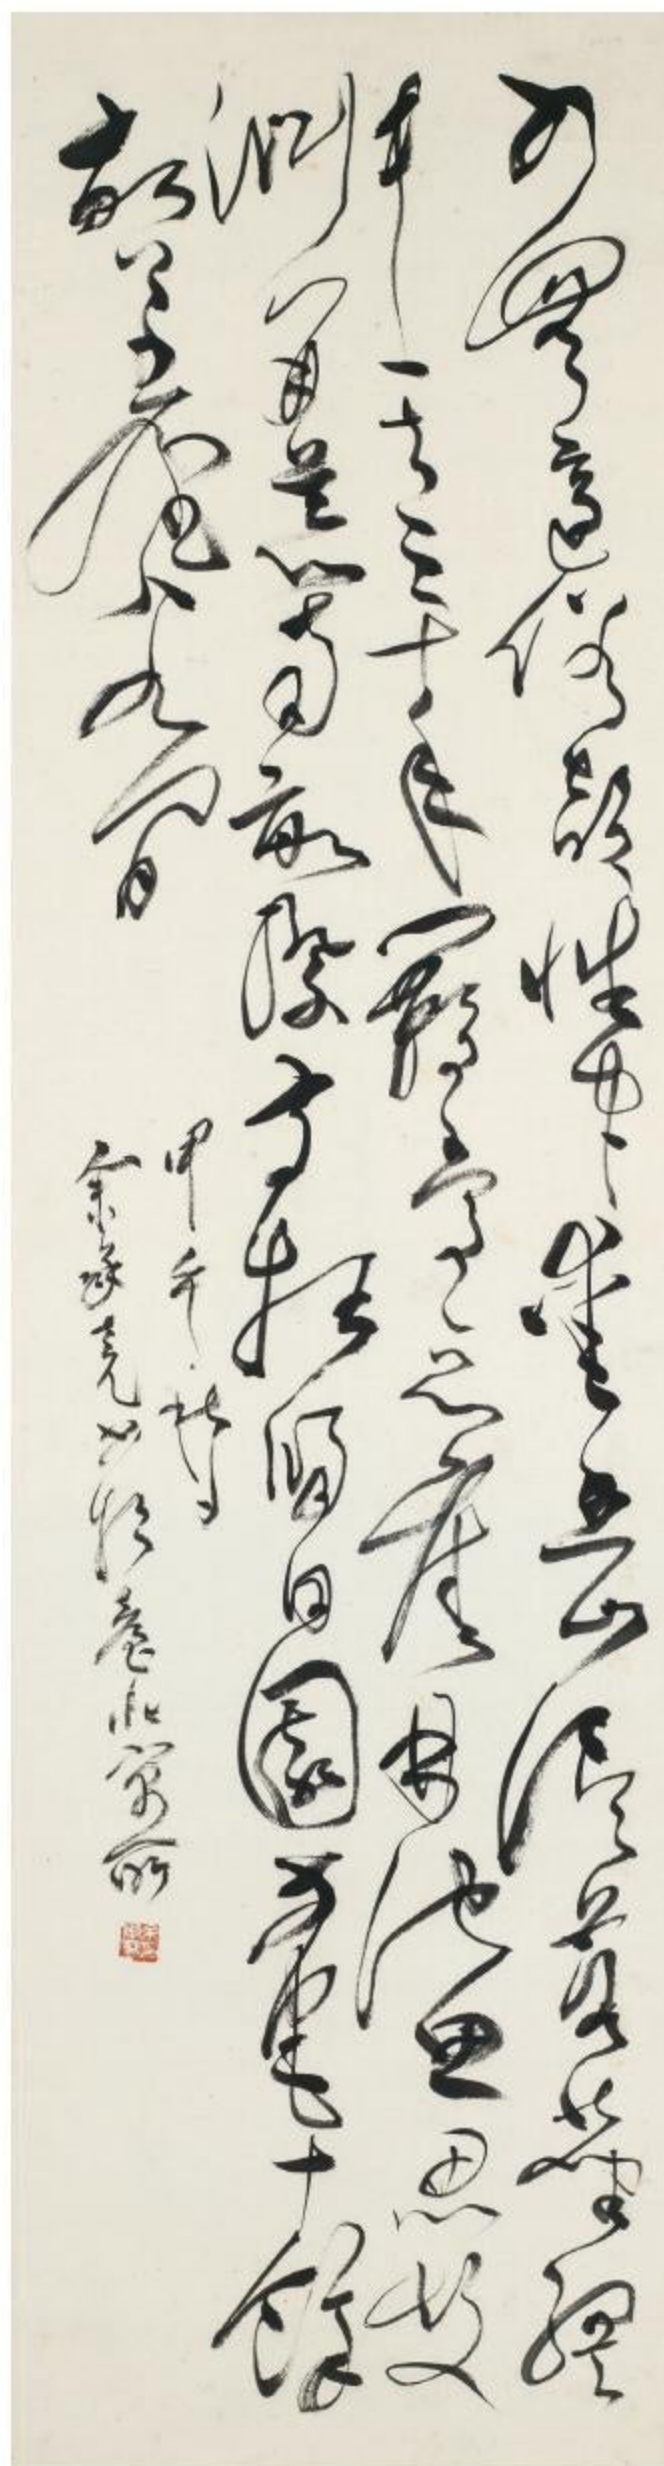 少無適俗韻性本愛丘山誤落塵網
中一去三十年羈鳥戀舊林池魚思故
淵開荒南畝際守拙歸田園方宅十餘
畝草屋八九間
甲午秋日
余承堯書於臺北寓所